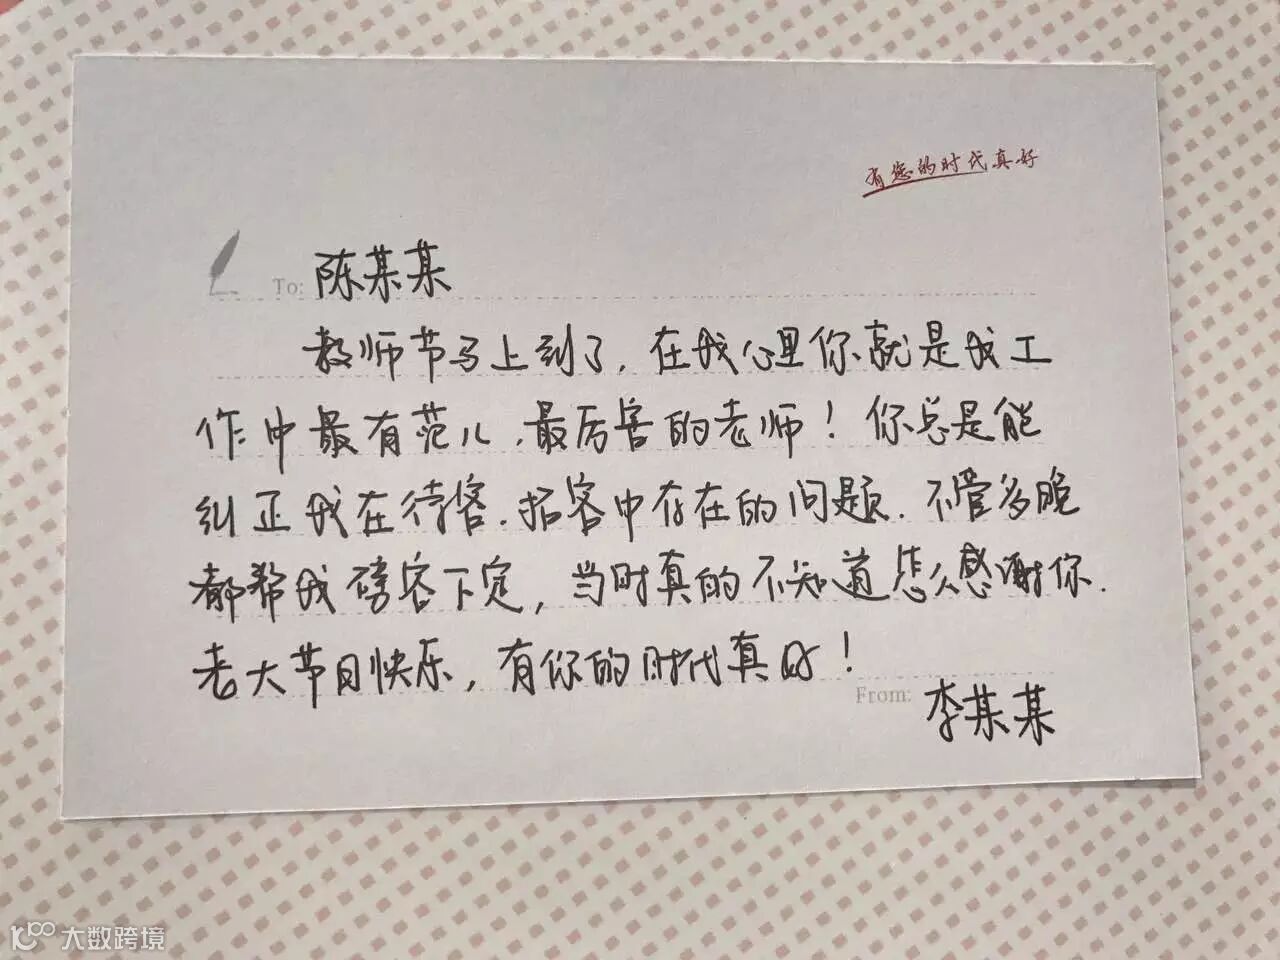 有您的时代真好
To: 陈某某
教师节马上到了,在我心里你就是我工
作中最有范儿、最厉害的老师!你总是能
纠正我在待客、拓客中存在的问题.不管多晚
都帮我磅客下定,当时真的不知道怎么感谢你.
老大节日快乐,有你的时代真好!
From: 李某某
大数跨境